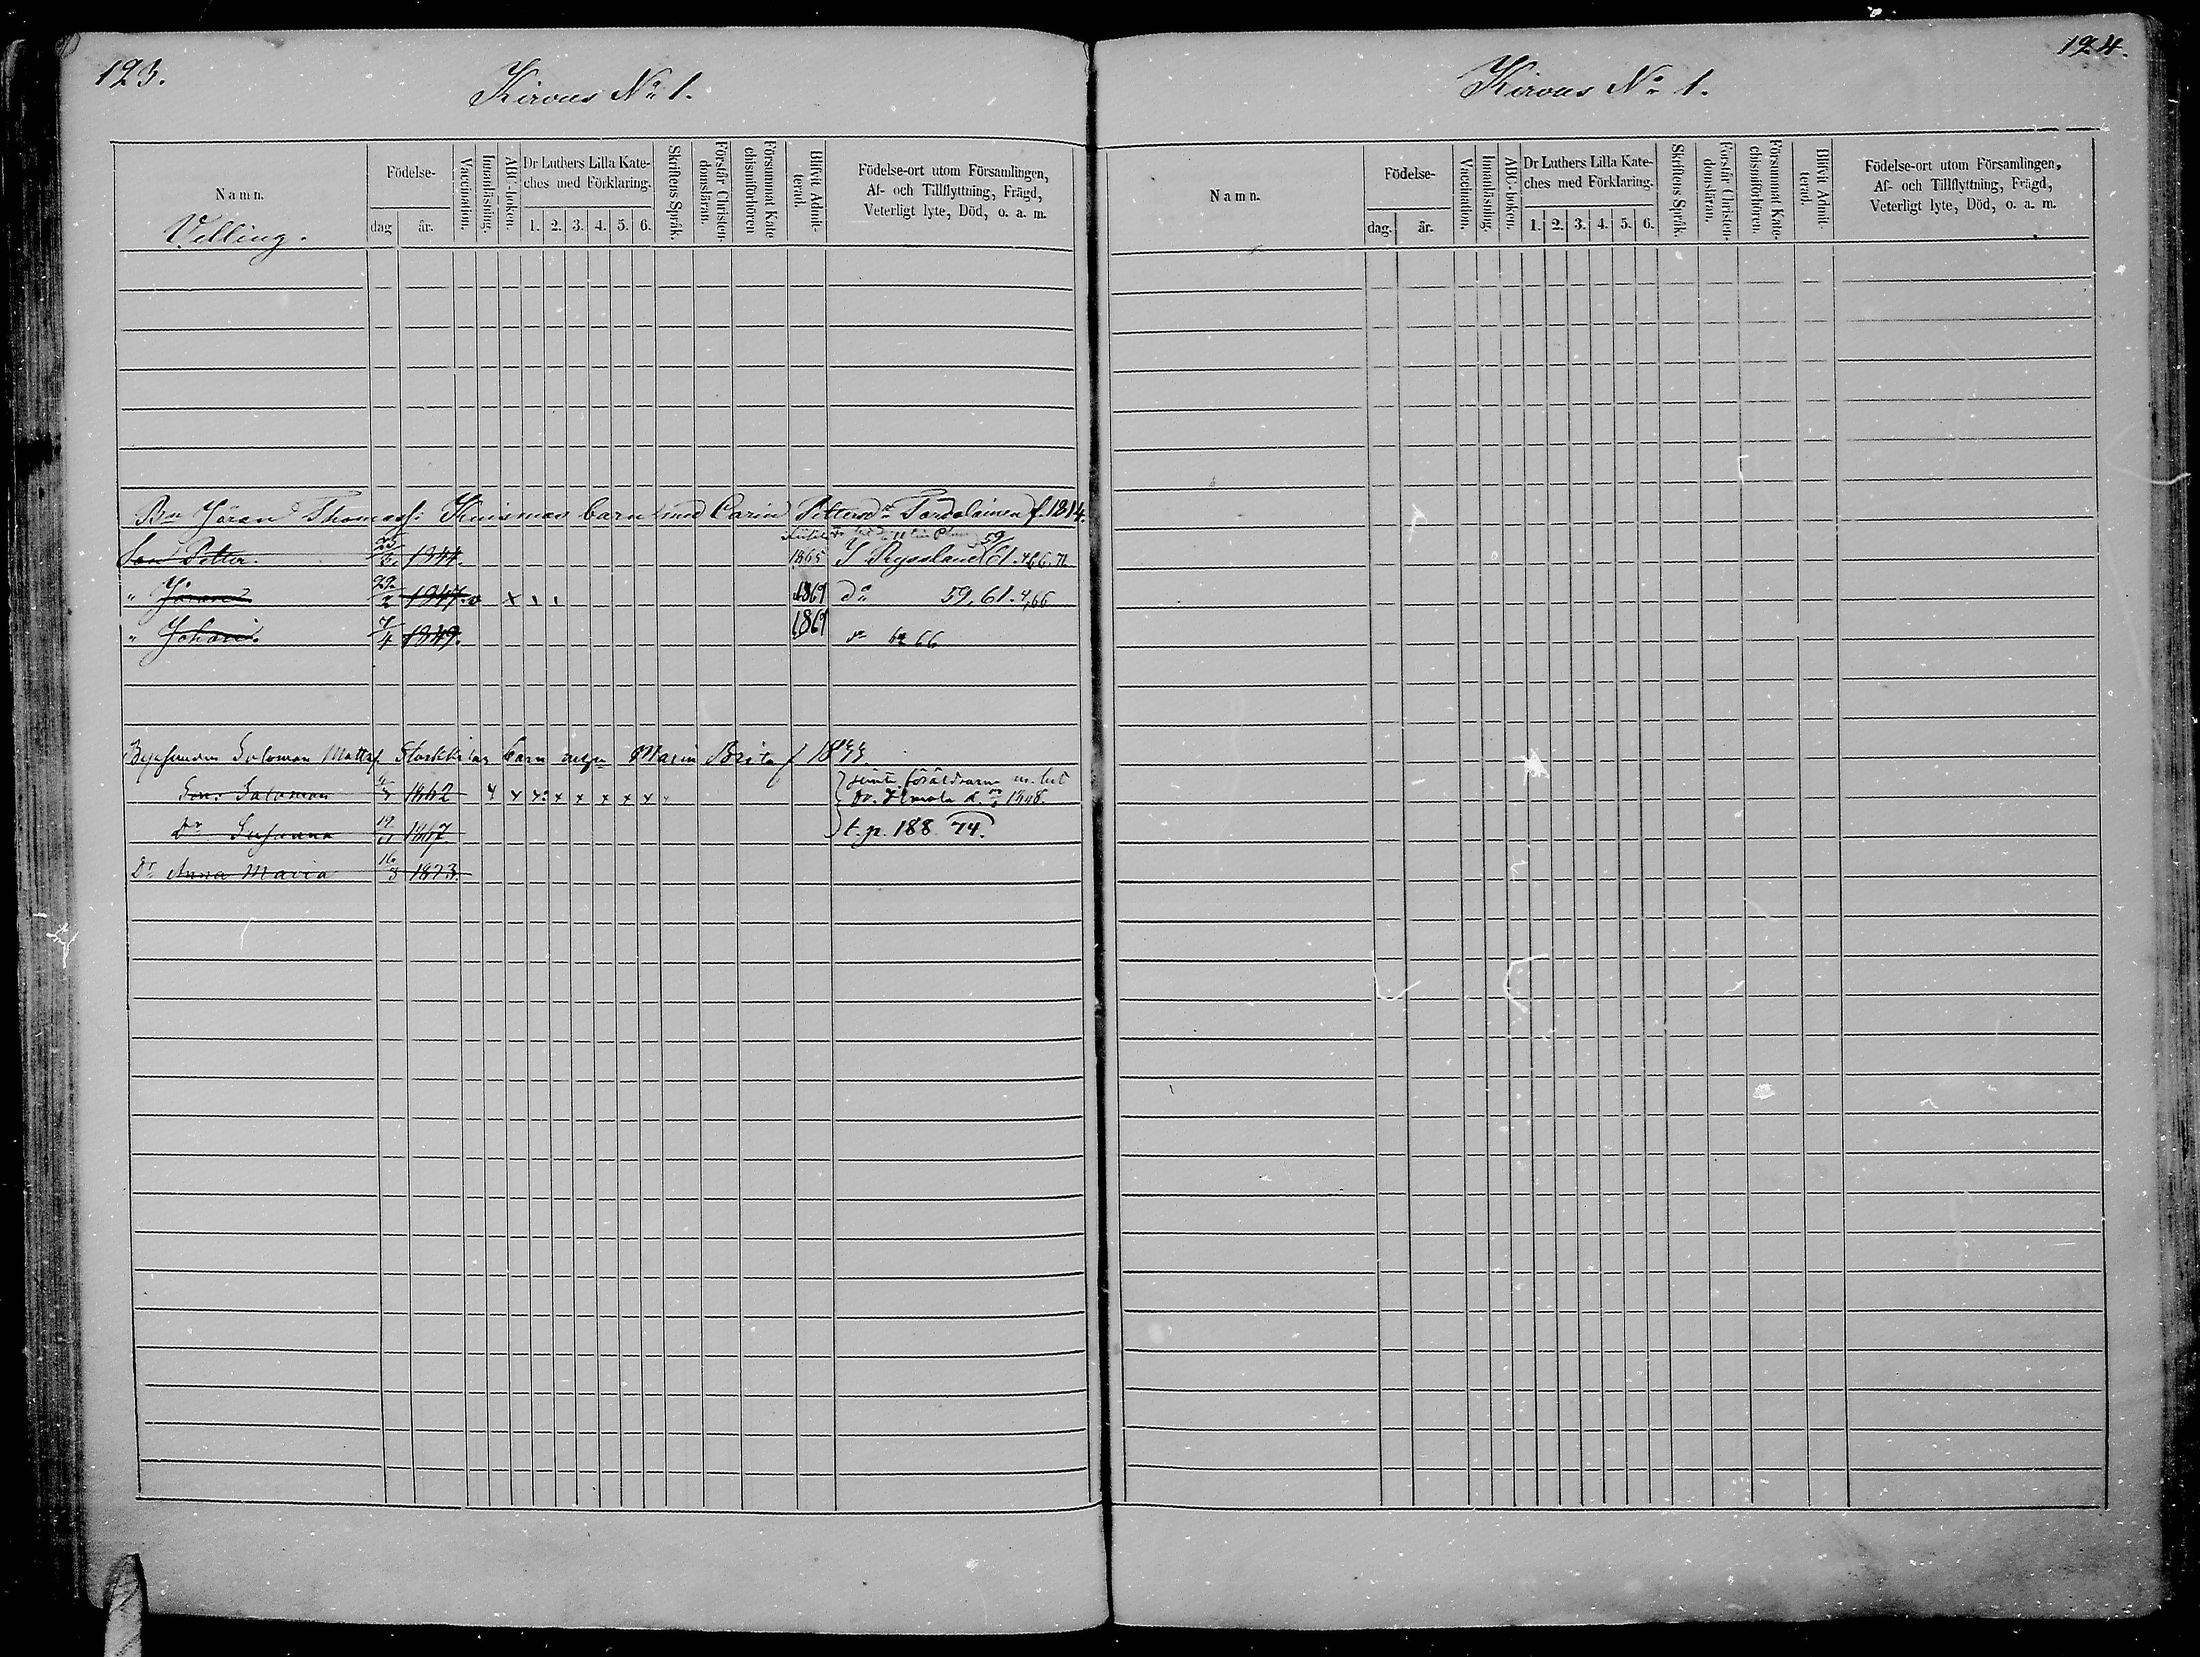 123.
Kirvus No 1.
Namn.
Födelse-
dag
år.
Vaccination.
Innanläsning.
ABC-boken.
Dr Luthers Lilla Kate-
ches med Förklaring.
1. 2. 3. 4. 5. 6.
Skriftens Språk.
Förstår Christen-
domsläran.
Försummat Kate
chismiförhören
Blifvit Admit-
terad.
Födelse-ort utom Församlingen,
Af- och Tillflyttning, Frägd,
Veterligt lyte, Död, o. a. m.
Velling.
Bn Jöran Thomass: Kuismas barn med Carin Pettersdr Tordolainen f. 1814.
Son Petter. 1844. 1865 I Ryssland 59 61. 4,66.
" Jöran 22/2 1847. x 1869 do 59, 61. 4,66
" Johan. 7/4 1849. 1869 do 62 66
Salomon Matts barn Maria Brita f 18
Son: Salomon 1862 x x x x x x x föräldrarne
1868.
Dr Susanna 19/11 1867. t. p. 188 74.
Dr Anna Maria 16/8 1873.
124.
Kirvus No 1.
Namn.
Födelse-
dag.
år.
Vaccination.
Innanläsning.
ABC-boken.
Dr Luthers Lilla Kate-
ches med Förklaring.
1. 2. 3. 4. 5. 6.
Skriftens Språk.
Förstår Christen-
domsläran.
Försummat Kate-
chismiförhören.
Blifvit Admit-
terad.
Födelse-ort utom Församlingen,
Af- och Tillflyttning, Frägd,
Veterligt lyte, Död, o. a. m.